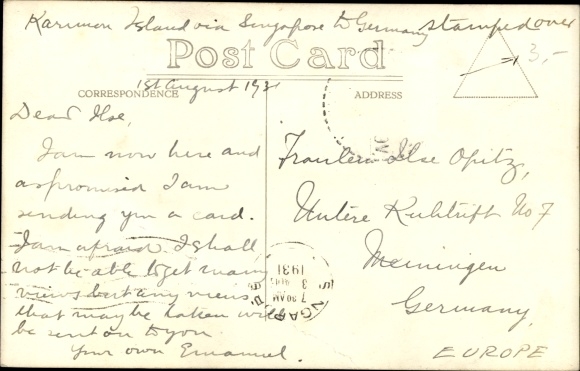 Karimon Island via Singapore to Germany stamped over
Post Card
1st August 1931
CORRESPONDENCE
ADDRESS
3,-
Dear Ilse,
I am now here and
as promised I am
sending you a card.
I am afraid I shall
not be able to get many
views but any views,
that may be taken will
be sent on to you
Your own Emanuel.
Fraulein Ilse Opitz,
Untere Kuhtrift No 7
Meiningen
Germany,
EUROPE
SINGAPORE
7.30 AM
3 AUG
1931